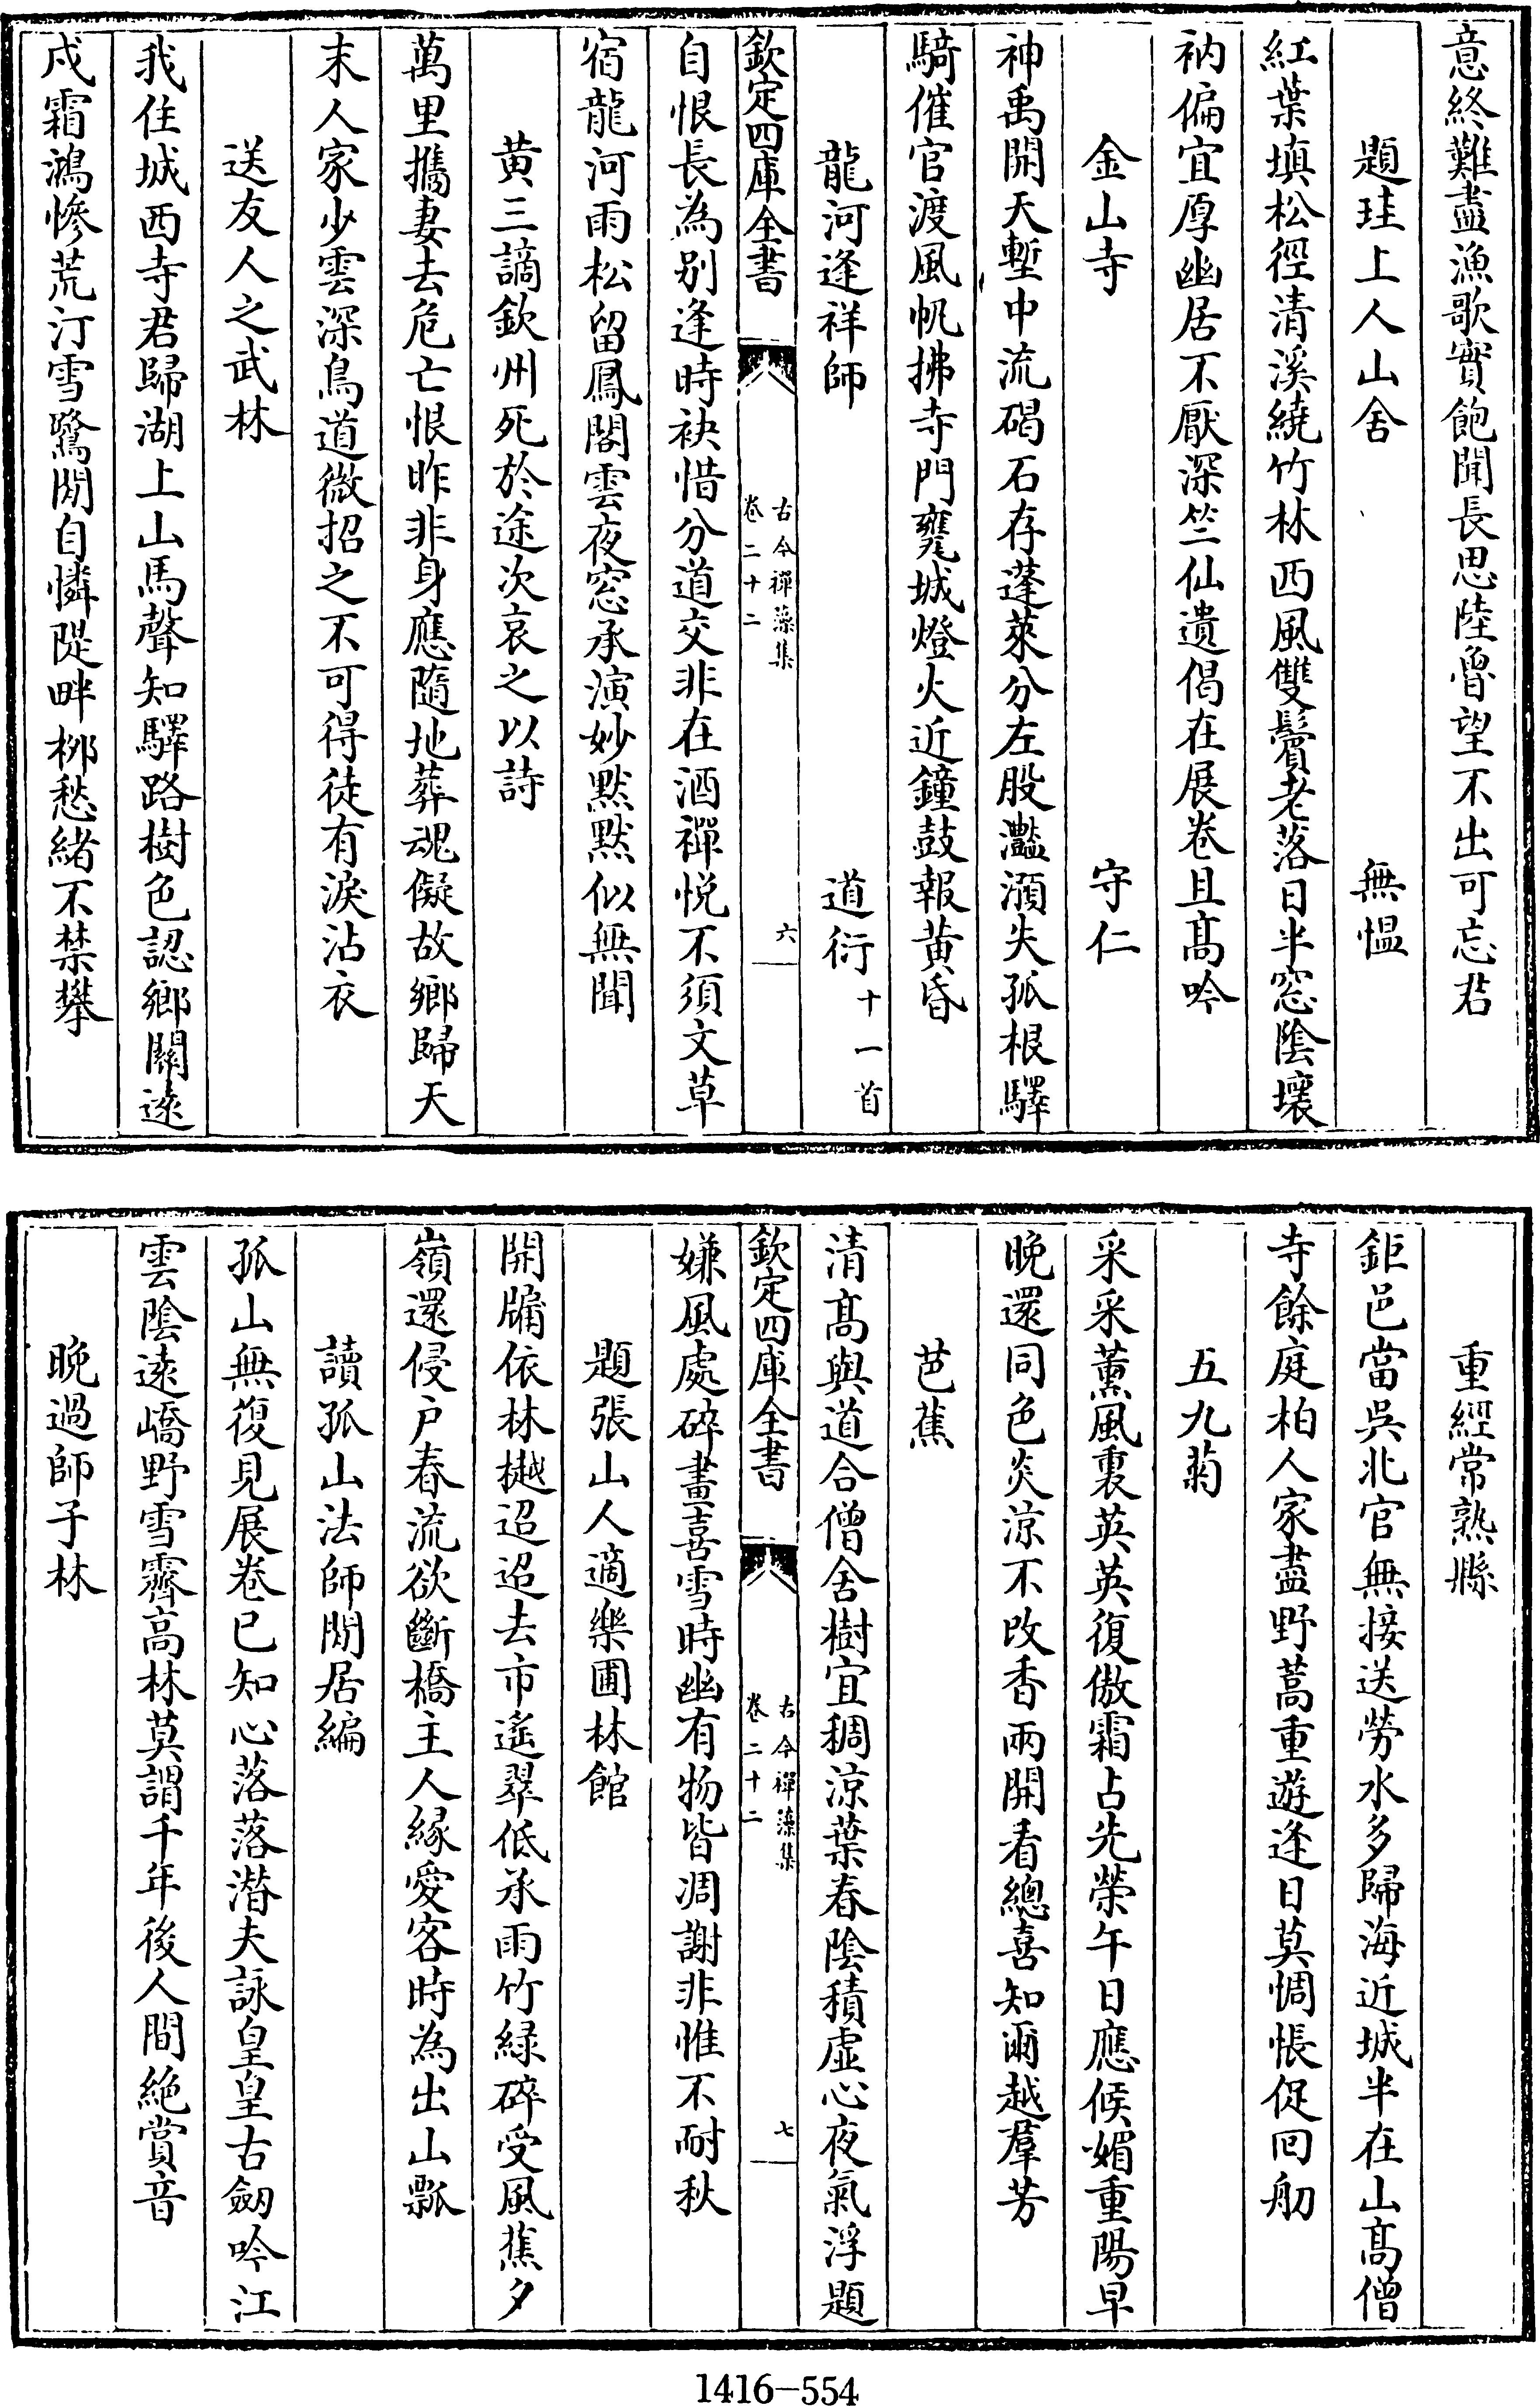 意終難盡漁歌實飽聞長思陸魯望不出可忘君
題珪上人山舍　無愠
紅葉填松徑清溪繞竹林西風雙鬢老落日半窓陰壞
衲偏宜厚幽居不厭深竺仙遺偈在展卷且髙吟
金山寺　守仁
神禹開天塹中流碣石存蓬萊分左股灔澦失孤根驛
騎催官渡風帆拂寺門甕城燈火近鐘鼓報黄昏
龍河逢祥師　道衍十一首
欽定四庫全書　古今禪藻集　卷二十二　六
自恨長為别逢時袂惜分道交非在酒禪悦不須文草
宿龍河雨松留鳳閣雲夜窓承演妙黙黙似無聞
黄三謫欽州死於途次哀之以詩
萬里攜妻去危亡恨昨非身應隨地葬魂儗故鄉歸天
末人家少雲深鳥道微招之不可得徒有淚沾衣
送友人之武林
我住城西寺君歸湖上山馬聲知驛路樹色認鄉關遠
戍霜鴻慘荒汀雪鷺閒自憐隄畔栁愁緒不禁攀
重經常熟縣
鉅邑當吳北官無接送勞水多歸海近城半在山髙僧
寺餘庭柏人家盡野蒿重遊逢日莫惆悵促囘舠
五九菊
采采薰風裏英英復傲霜占先榮午日應候媚重陽早
晚還同色炎涼不改香兩開看總喜知爾越羣芳
芭蕉
清髙與道合僧舍樹宜稠涼葉春陰積虛心夜氣浮題
欽定四庫全書　古今禪藻集　卷二十二　七
嫌風處碎畫喜雪時幽有物皆凋謝非惟不耐秋
題張山人適樂圃林館
開牖依林樾迢迢去市遙翠低承雨竹緑碎受風蕉夕
嶺還侵户春流欲斷橋主人緣愛客時為出山瓢
讀孤山法師閒居編
孤山無復見展卷已知心落落潜夫詠皇皇古劒吟江
雲陰逺嶠野雪霽高林莫謂千年後人間絶賞音
晚過師子林
1416-554